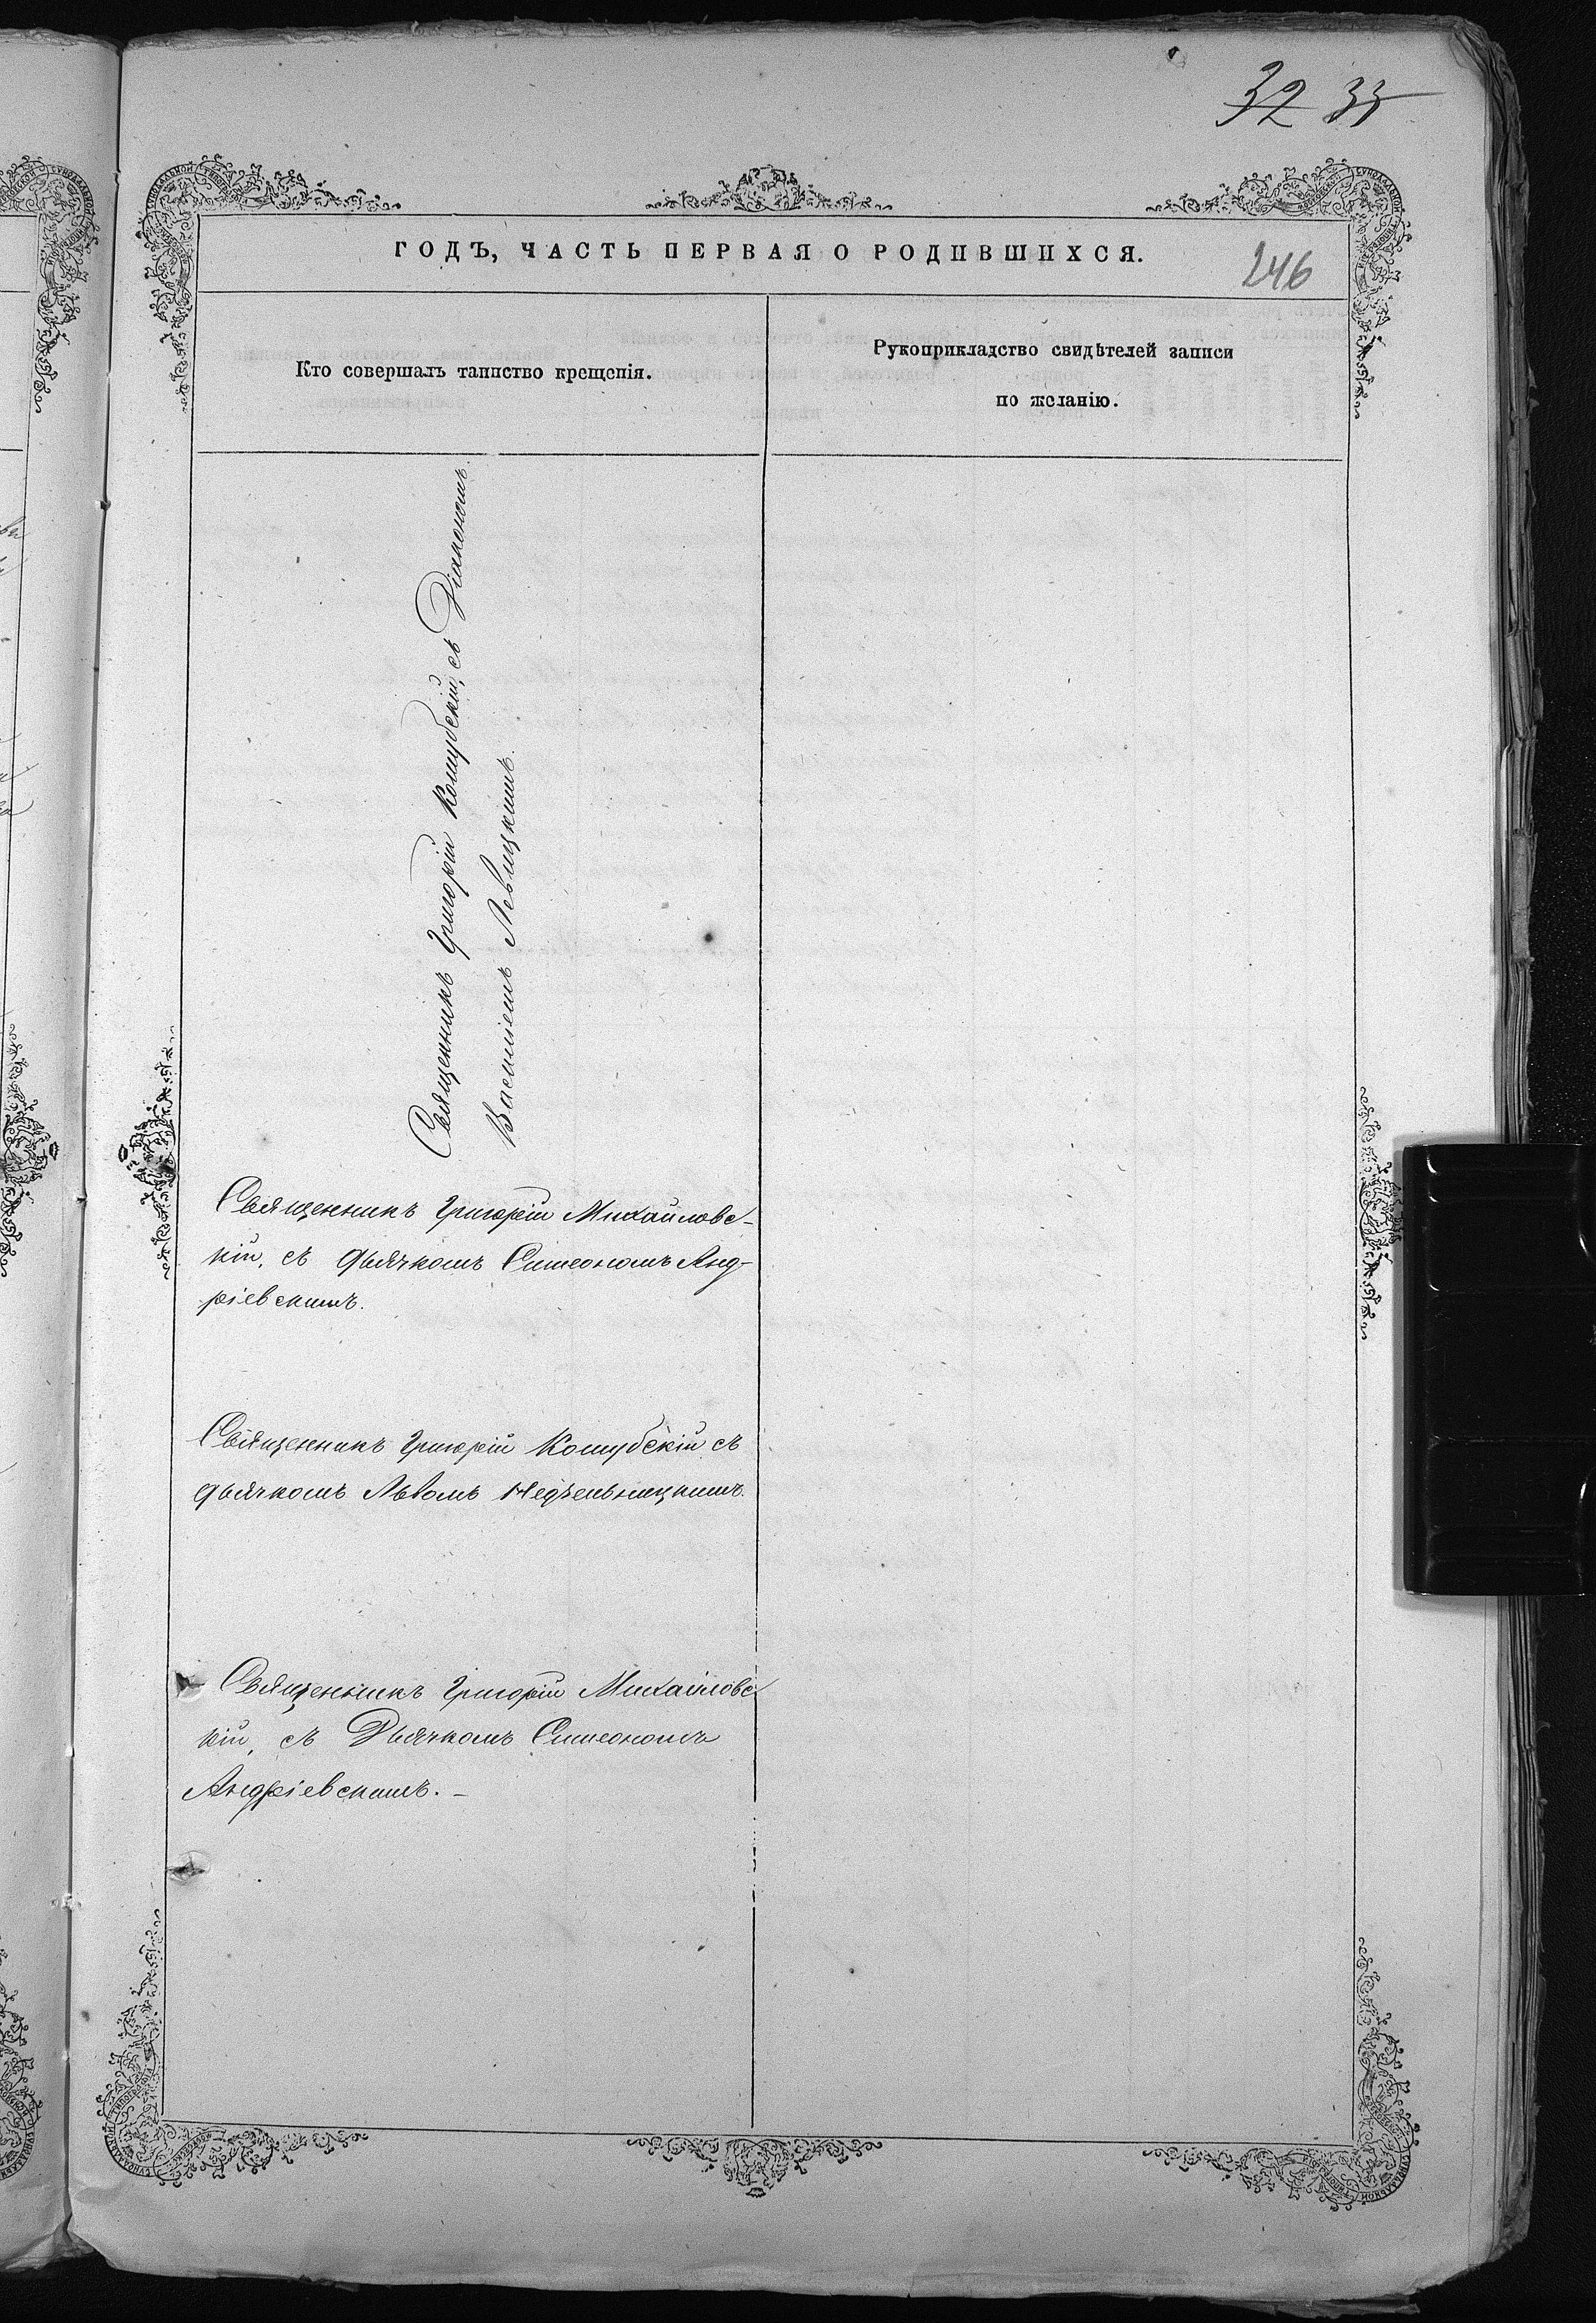 32 33
ГОДЪ, ЧАСТЬ ПЕРВАЯ О РОДИВШИХСЯ.
246
Кто совершалъ таинство крещенія.
Рукоприкладство свидѣтелей записи
по желанію.
Священникъ Григорій Кошубскій, съ Діакономъ
Василіемъ Левицкимъ.
Священникъ Григорій Михайловс-
кій, съ дьячкомъ Симеономъ Анд-
ріевскимъ.
Священникъ Григорій Кошубскій съ
дьячкомъ Львомъ Недѣльницкимъ.
Священникъ Григорій Михайловс-
кій, съ Дьячкомъ Симеономъ
Андріевскимъ. –